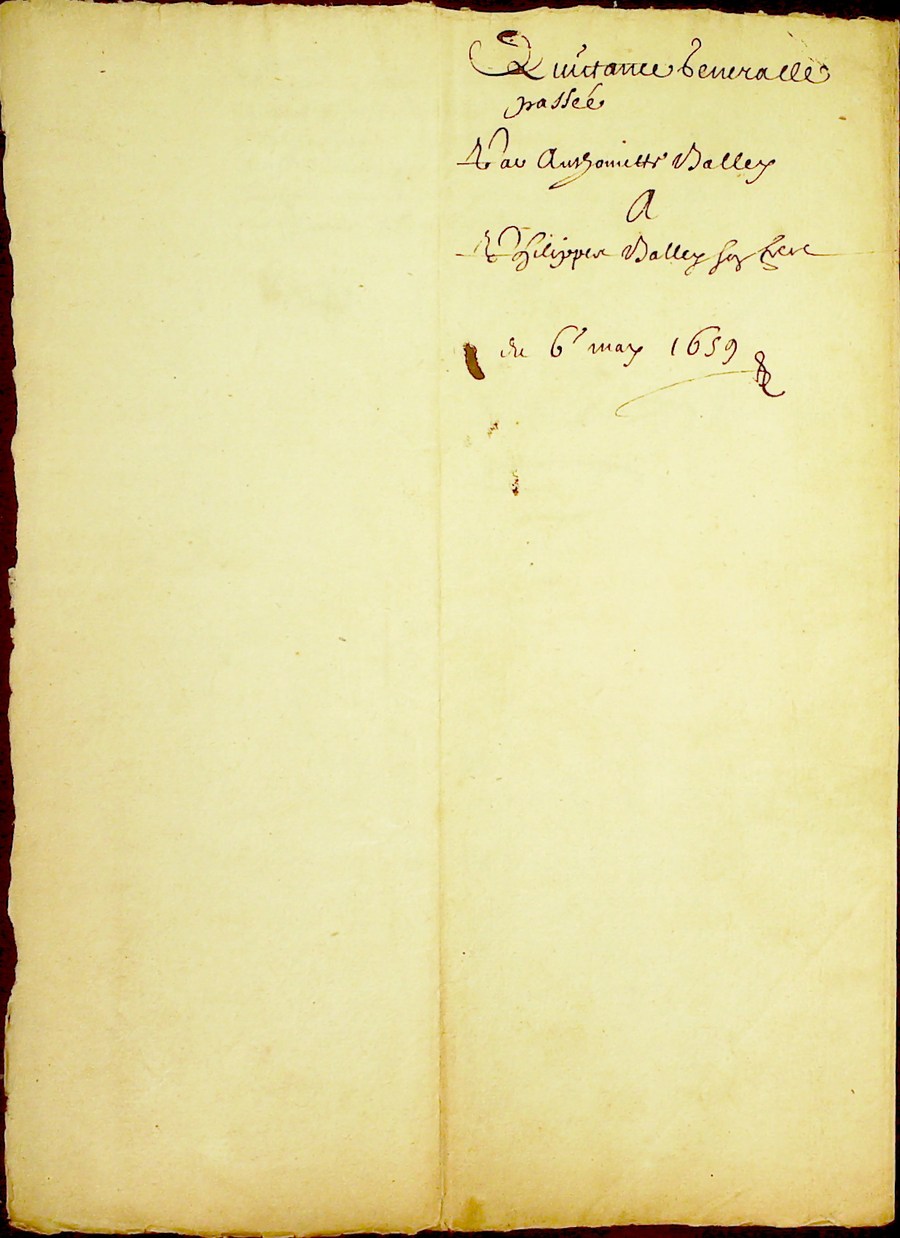 Quictance generalle
passée
Par Anthoinette Balley
A
Philippes Balley son frere
du 6e may 1659